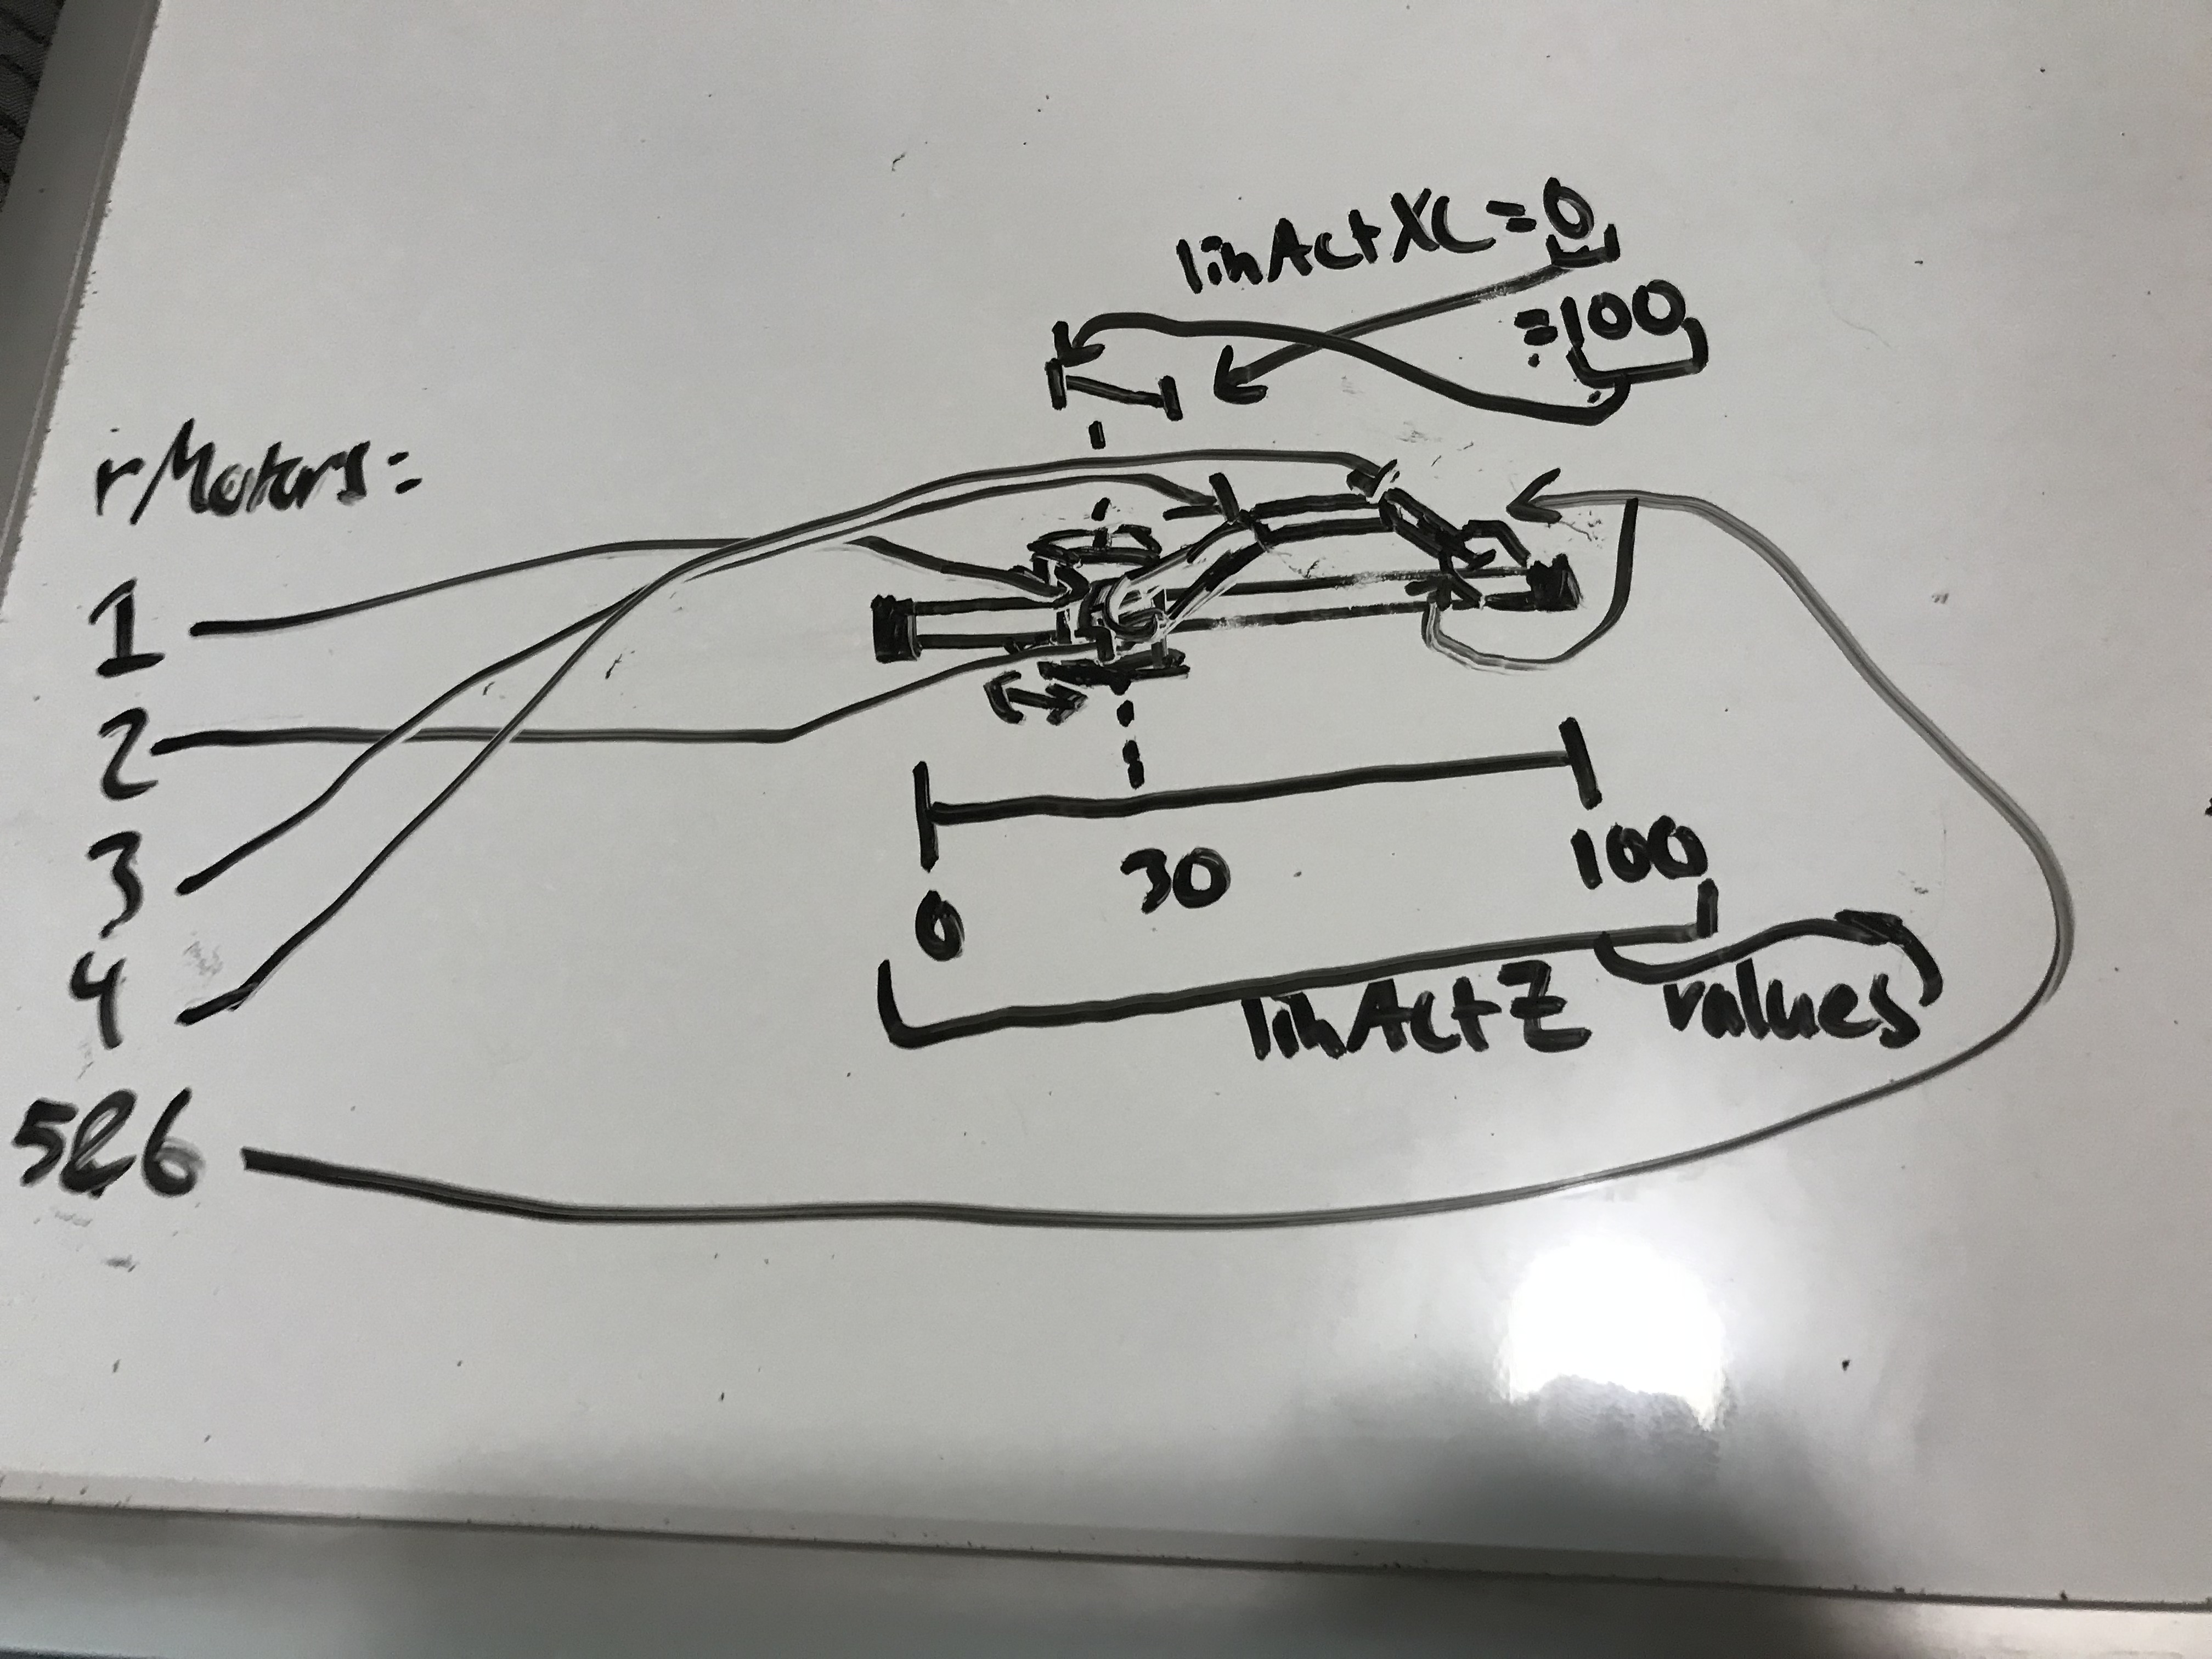 linActXC=0
=100
rMotors:
1
2
3
4
5&6
0 30 100
linActZ values